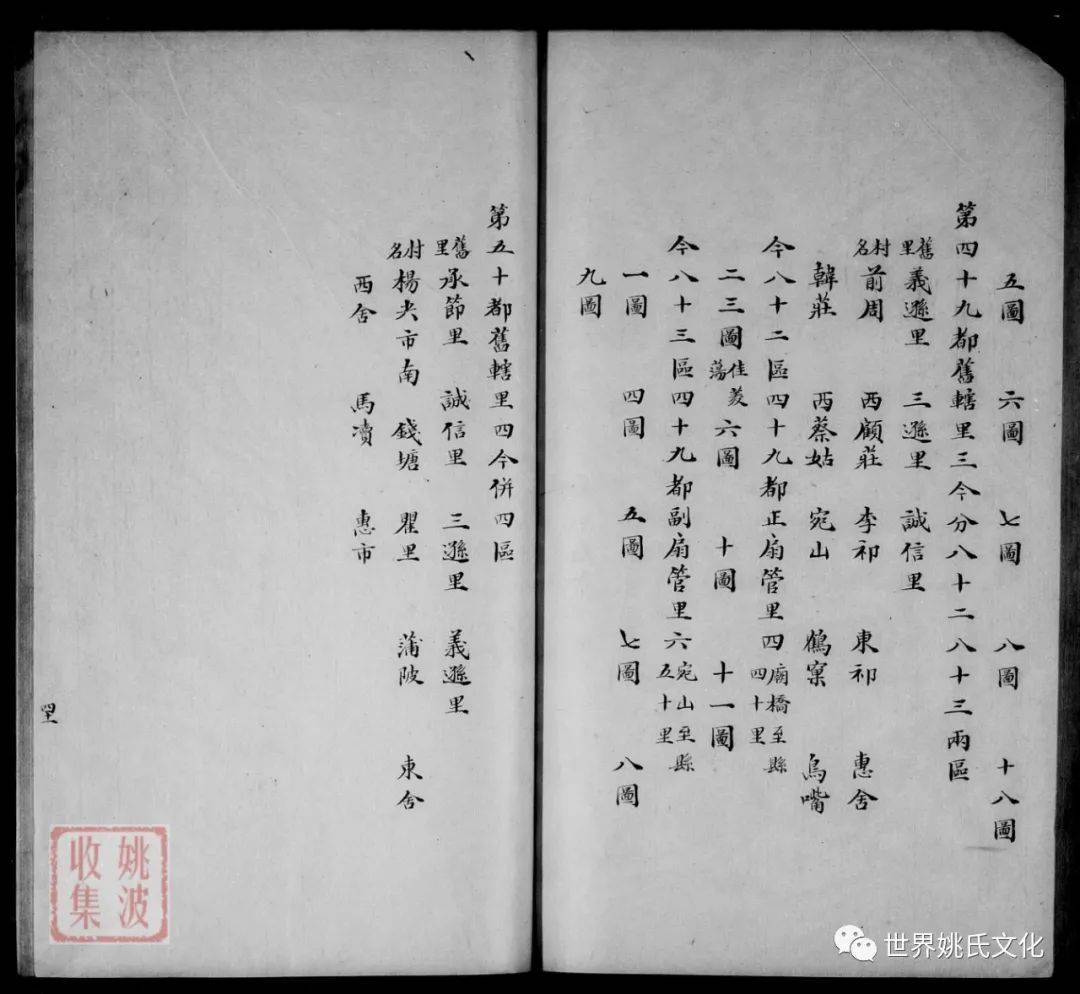 五圖 六圖 七圖 八圖 十八圖
第四十九都舊轄里三今分八十二八十三兩區
舊里 義遜里 三遜里 誠信里
村名 前周 西顧莊 李祁 東祁 惠舍
韓莊 西蔡姑 宛山 鶴窠 烏嘴
今八十二區四十九都正扇管里四 廟橋至縣四十里
二三圖 佳菱蕩 六圖 十圖 十一圖
今八十三區四十九都副扇管里六 宛山至縣五十里
一圖 四圖 五圖 七圖 八圖
九圖
第五十都舊轄里四今併四區
舊里 承節里 誠信里 三遜里 義遜里
村名 楊尖市南 錢塘 瞿里 蒲陂 東舍
西舍 馬凟 惠市
姚波
收集
世界姚氏文化